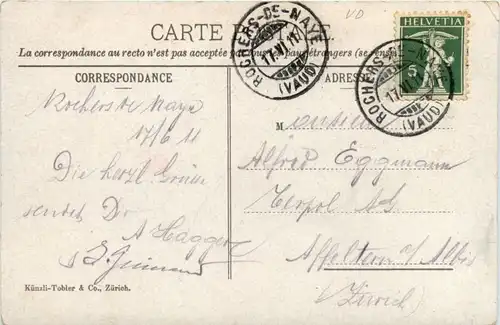 CARTE
VD
La correspondance au recto n'est pas acceptée
CORRESPONDANCE
ADRESSE
HELVETIA
5
ROCHERS-DE-NAYE
17.VI.11
(VAUD)
ROCHERS-DE-NAYE
17.VI.11
(VAUD)
Rochers de Naye
17/6 11
Die herzl. Grüsse
sendet Dir
A Haggen
Monsieur
Alfred Eggmann
Affoltern a/ Albis
(Zürich)
Künzli-Tobler & Co., Zürich.